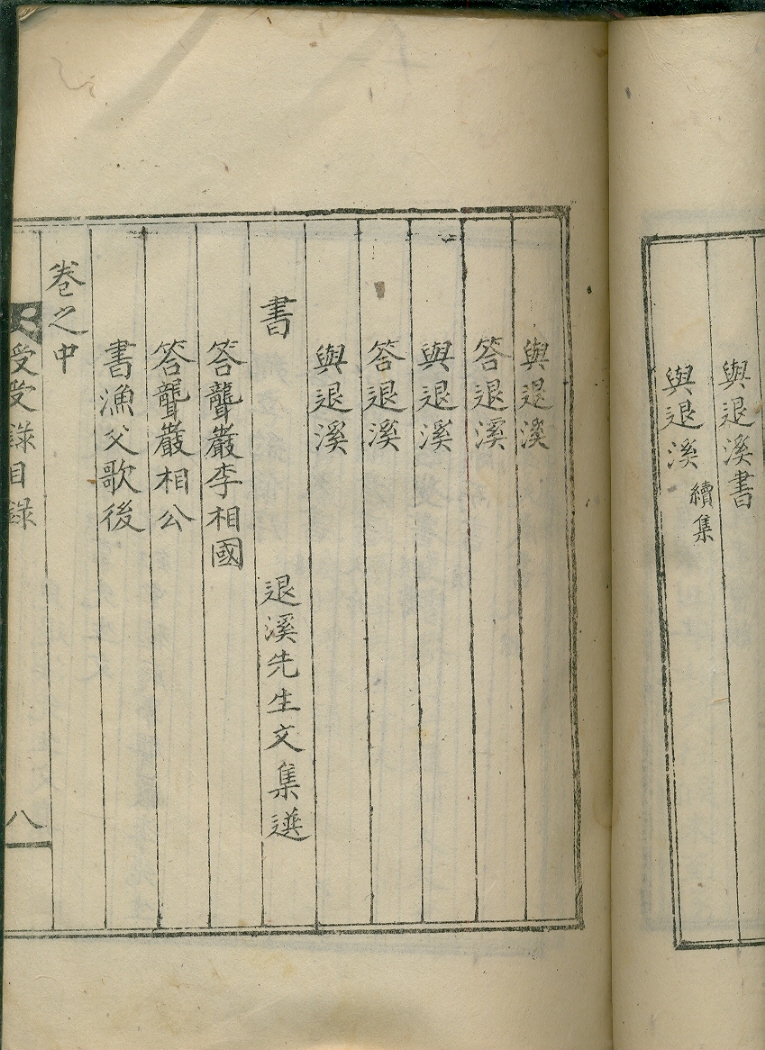 與退溪書
與退溪 續集
與退溪
答退溪
與退溪
答退溪
與退溪
書 退溪先生文集選
答聾巖李相國
答聾巖相公
書漁父歌後
卷之中
受受錄目錄 八